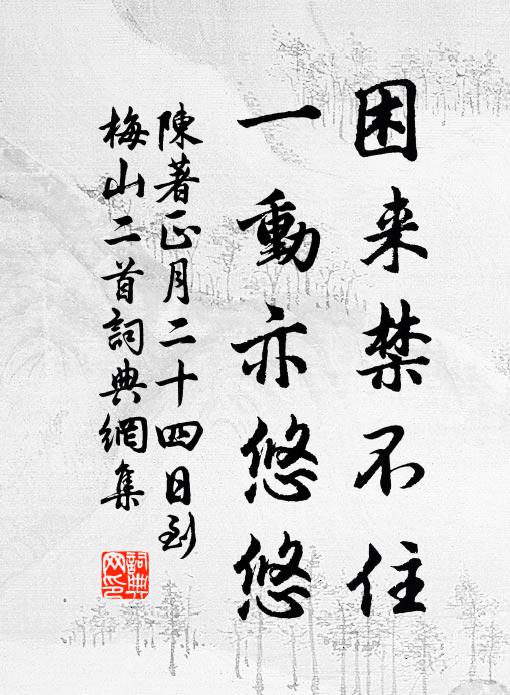 困来禁不住
一動亦悠悠
陳著正月二十四日到
梅山二首詞典網集
詞典网印